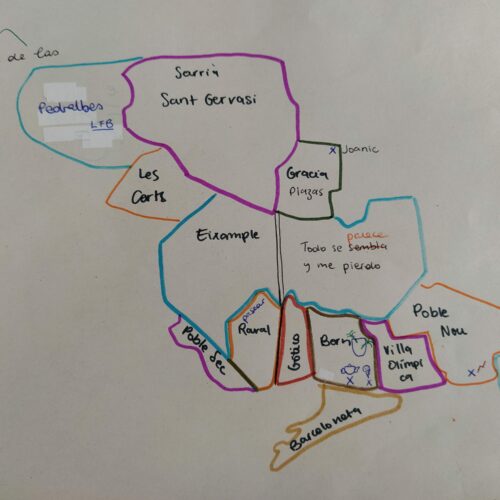 de las
Sarrià
Sant Gervasi
Pedralbes
LFB
Joanic
Les
Corts
Gracia
Plazas
Eixample
parece
Todo se sembla
y me pierdo
Poble
Nou
pasear
Raval
Poble Sec
Gótico
Born
Villa
Olímpi
ca
Barceloneta